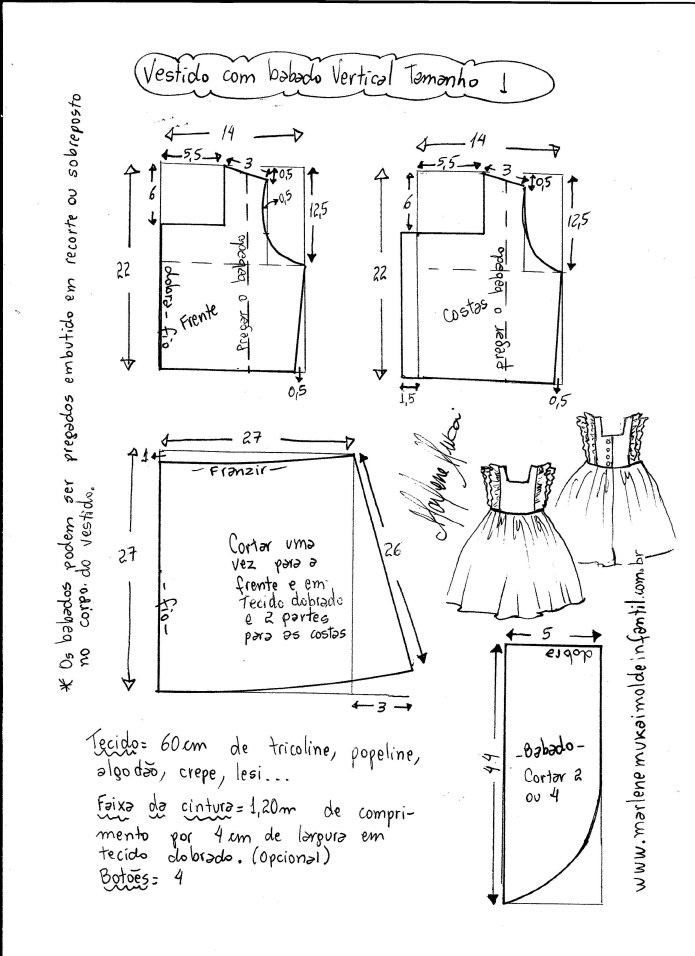 Vestido com babado Vertical Tamanho 1
* Os babados podem ser pregados embutido em recorte ou sobreposto
no corpo do vestido.
14
5,5
3
0,5
0,5
6
12,5
22
dobra - fio
Frente
pregar o babado
0,5
14
5,5
3
0,5
6
12,5
22
Costas
pregar o babado
1,5
0,5
27
1
- Franzir -
27
26
- fio -
Cortar uma
vez para a
frente e em
Tecido dobrado
e 2 partes
para as costas
3
Marlene Mukai
www.marlenemukaimoldeinfantil.com.br
5
dobra
44
- Babado -
Cortar 2
ou 4
Tecido= 60cm de tricoline, popeline,
algodão, crepe, lesi...
Faixa da cintura= 1,20m de compri-
mento por 4cm de largura em
tecido dobrado. (Opcional)
Botões= 4